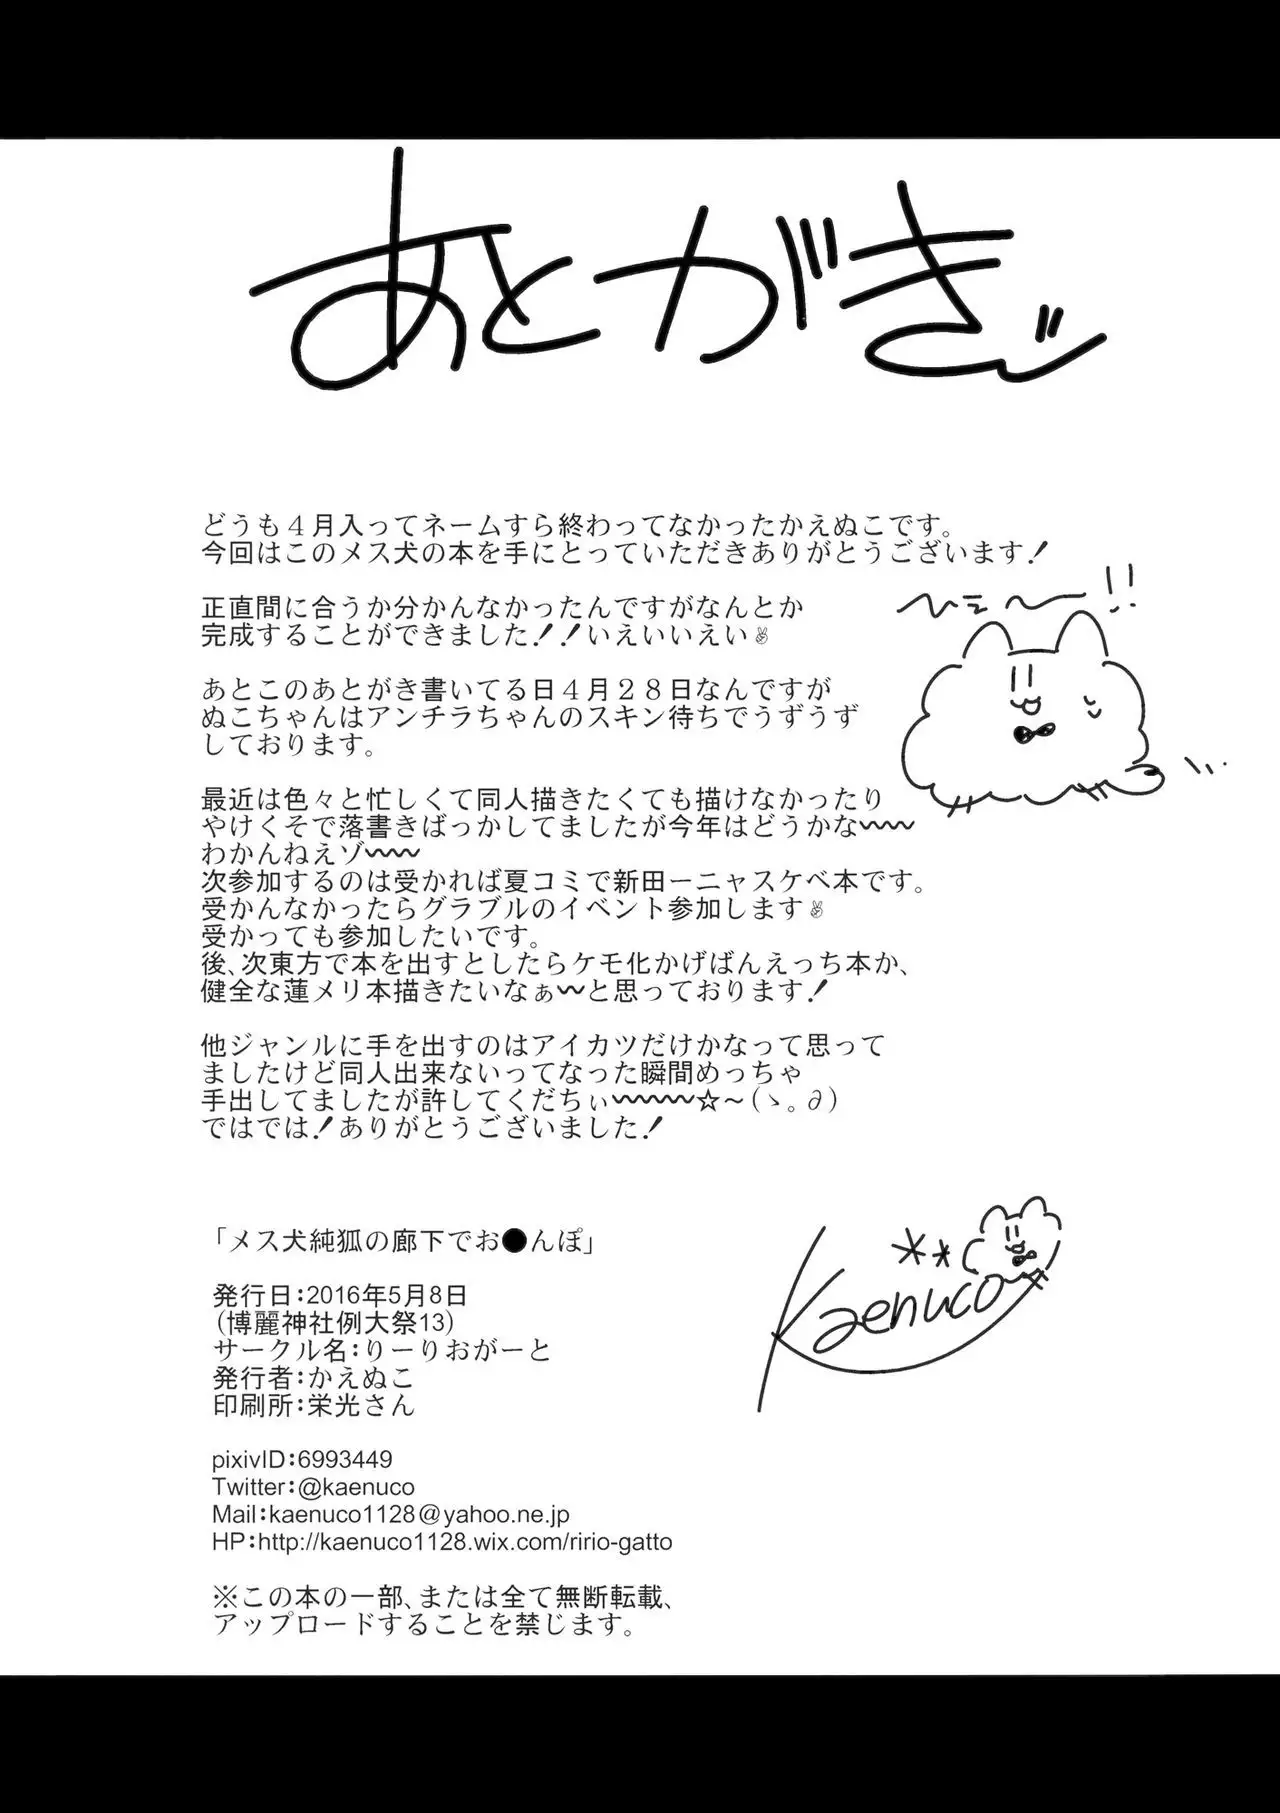 あとがきッ
どうも４月入ってネームすら終わってなかったかえぬこです。
今回はこのメス犬の本を手にとっていただきありがとうございます！
ひえ〜!!
正直間に合うか分かんなかったんですがなんとか
完成することができました！！いえいいえい✌
あとこのあとがき書いてる日４月２８日なんですが
ぬこちゃんはアンチラちゃんのスキン待ちでうずうず
しております。
最近は色々と忙しくて同人描きたくても描けなかったり
やけくそで落書きばっかしてましたが今年はどうかな〰〰
わかんねえゾ〰〰
次参加するのは受かれば夏コミで新田ーニャスケベ本です。
受かんなかったらグラブルのイベント参加します✌
受かっても参加したいです。
後、次東方で本を出すとしたらケモ化かげばんえっち本か、
健全な蓮メリ本描きたいなぁ〰と思っております！
他ジャンルに手を出すのはアイカツだけかなって思って
ましたけど同人出来ないってなった瞬間めっちゃ
手出してましたが許してくだちぃ〰〰〰☆～(ゝ。∂)
ではでは！ありがとうございました！
「メス犬純狐の廊下でお●んぽ」
発行日：2016年5月8日
（博麗神社例大祭13）
サークル名：りーりおがーと
発行者：かえぬこ
印刷所：栄光さん
Kaenuco
pixivID：6993449
Twitter：@kaenuco
Mail：kaenuco1128@yahoo.ne.jp
HP：http://kaenuco1128.wix.com/ririo-gatto
※この本の一部、または全て無断転載、
アップロードすることを禁じます。